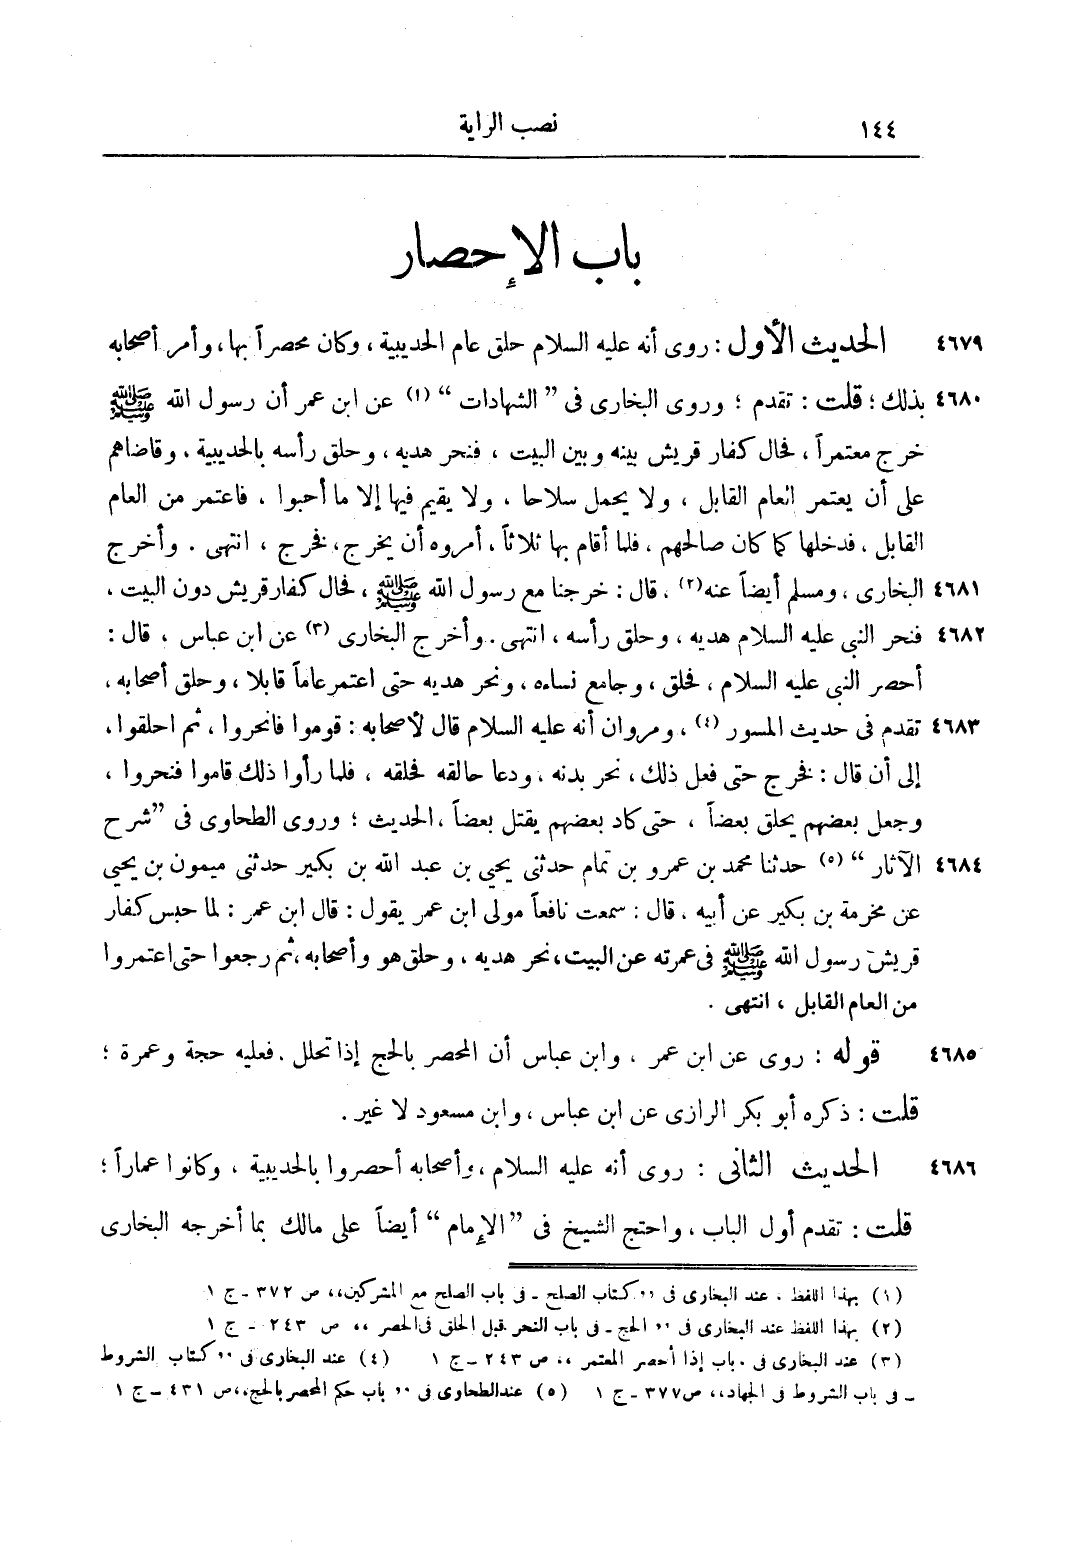 ١٤٤ نصب الراية
باب الإحصار
٤٦٧٩ الحديث الأول : روى أنه عليه السلام حلق عام الحديبية ، وكان محصراً بها، وأمر أصحابه
٤٦٨٠ بذلك ؛ قلت : تقدم ؛ وروى البخارى فى ” الشهادات “ (١) عن ابن عمر أن رسول الله ﷺ
خرج معتمراً ، فحال كفار قريش بينه وبين البيت ، فنحر هديه ، وحلق رأسه بالحديبية ، وقاضاهم
على أن يعتمر العام القابل ، ولا يحمل سلاحا ، ولا يقيم فيها إلا ما أحبوا ، فاعتمر من العام
القابل ، فدخلها كما كان صالحهم ، فلما أقام بها ثلاثاً ، أمروه أن يخرج، فخرج ، انتهى . وأخرج
٤٦٨١ البخارى ، ومسلم أيضاً عنه(٢) ، قال : خرجنا مع رسول الله ﷺ ، فحال كفار قريش دون البيت ،
٤٦٨٢ فنحر النبى عليه السلام هديه ، وحلق رأسه ، انتهى . وأخرج البخارى (٣) عن ابن عباس ، قال :
أحصر النبى عليه السلام ، فحلق ، وجامع نساءه، ونحر هديه حتى اعتمر عاماً قابلا ، وحلق أصحابه ،
٤٦٨٣ تقدم فى حديث المسور (٤) ، ومروان أنه عليه السلام قال لأصحابه : قوموا فانحروا ، ثم احلقوا ،
إلى أن قال : فخرج حتى فعل ذلك ، نحر بدنه ، ودعا حالقه فحلقه ، فلما رأوا ذلك قاموا فنحروا ،
وجعل بعضهم يحلق بعضاً ، حتى كاد بعضهم يقتل بعضاً ، الحديث ؛ وروى الطحاوى فى ” شرح
٤٦٨٤ الآثار “ (٥) حدثنا محمد بن عمرو بن تمام حدثنى يحيى بن عبد الله بن بكير حدثنى ميمون بن يحيى
عن مخرمة بن بكير عن أبيه ، قال : سمعت نافعاً مولى ابن عمر يقول : قال ابن عمر : لما حبس كفار
قريش رسول الله ﷺ فى عمرته عن البيت، نحر هديه ، وحلق هو وأصحابه، ثم رجعوا حتى اعتمروا
من العام القابل ، انتهى .
٤٦٨٥ قوله : روى عن ابن عمر ، وابن عباس أن المحصر بالحج إذا تحلل . فعليه حجة وعمرة ؛
قلت : ذكره أبو بكر الرازى عن ابن عباس ، وابن مسعود لا غير .
٤٦٨٦ الحديث الثانى : روى أنه عليه السلام ، وأصحابه أحصروا بالحديبية ، وكانوا عماراً ؛
قلت : تقدم أول الباب ، واحتج الشيخ فى ” الإمام “ أيضاً على مالك بما أخرجه البخارى
(١) بهذا اللفظ ، عند البخارى فى ،، كتاب الصلح ـ فى باب الصلح مع المشركين،، ص ٣٧٢ ـ ج ١
(٢) بهذا اللفظ عند البخارى فى ،، الحج ـ فى باب النحر قبل الحلق فى الحصر ،، ص ٢٤٣ ـ ج ١
(٣) عند البخارى فى ، باب إذا أحصر المعتمر ،، ص ٢٤٣ ـ ج ١ (٤) عند البخارى فى ،، كتاب الشروط
ـ فى باب الشروط فى الجهاد،، ص ٣٧٧ ـ ج ١ (٥) عند الطحاوى فى ،، باب حكم المحصر بالحج،، ص ٤٣١ ـ ج ١